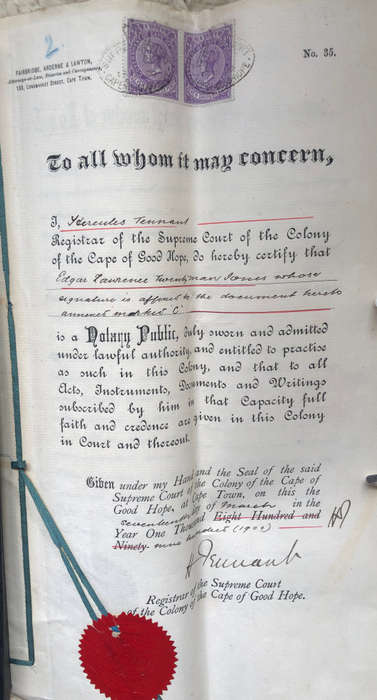 2
FAIRBRIDGE, ARDERNE & LAWTON,
Attorneys-at-Law, Notaries and Conveyancers,
133, LONGMARKET STREET, CAPE TOWN.
No. 35.
To all whom it may concern,
I, Hercules Tennant
Registrar of the Supreme Court of the Colony
of the Cape of Good Hope, do hereby certify that
Edgar Lawrence Twentyman Jones whose
signature is affixed to the document hereto
annexed marked C
is a Notary Public, duly sworn and admitted
under lawful authority, and entitled to practise
as such in this Colony, and that to all
Acts, Instruments, Documents and Writings
subscribed by him in that Capacity full
faith and credence are given in this Colony
in Court and thereout.
Given under my Hand and the Seal of the said
Supreme Court of the Colony of the Cape of
Good Hope, at Cape Town, on this the
day of March in the
Year One Thousand Eight Hundred and
Ninety nine hundred (1900)
HT
H Tennant
Registrar of the Supreme Court
of the Colony of the Cape of Good Hope.